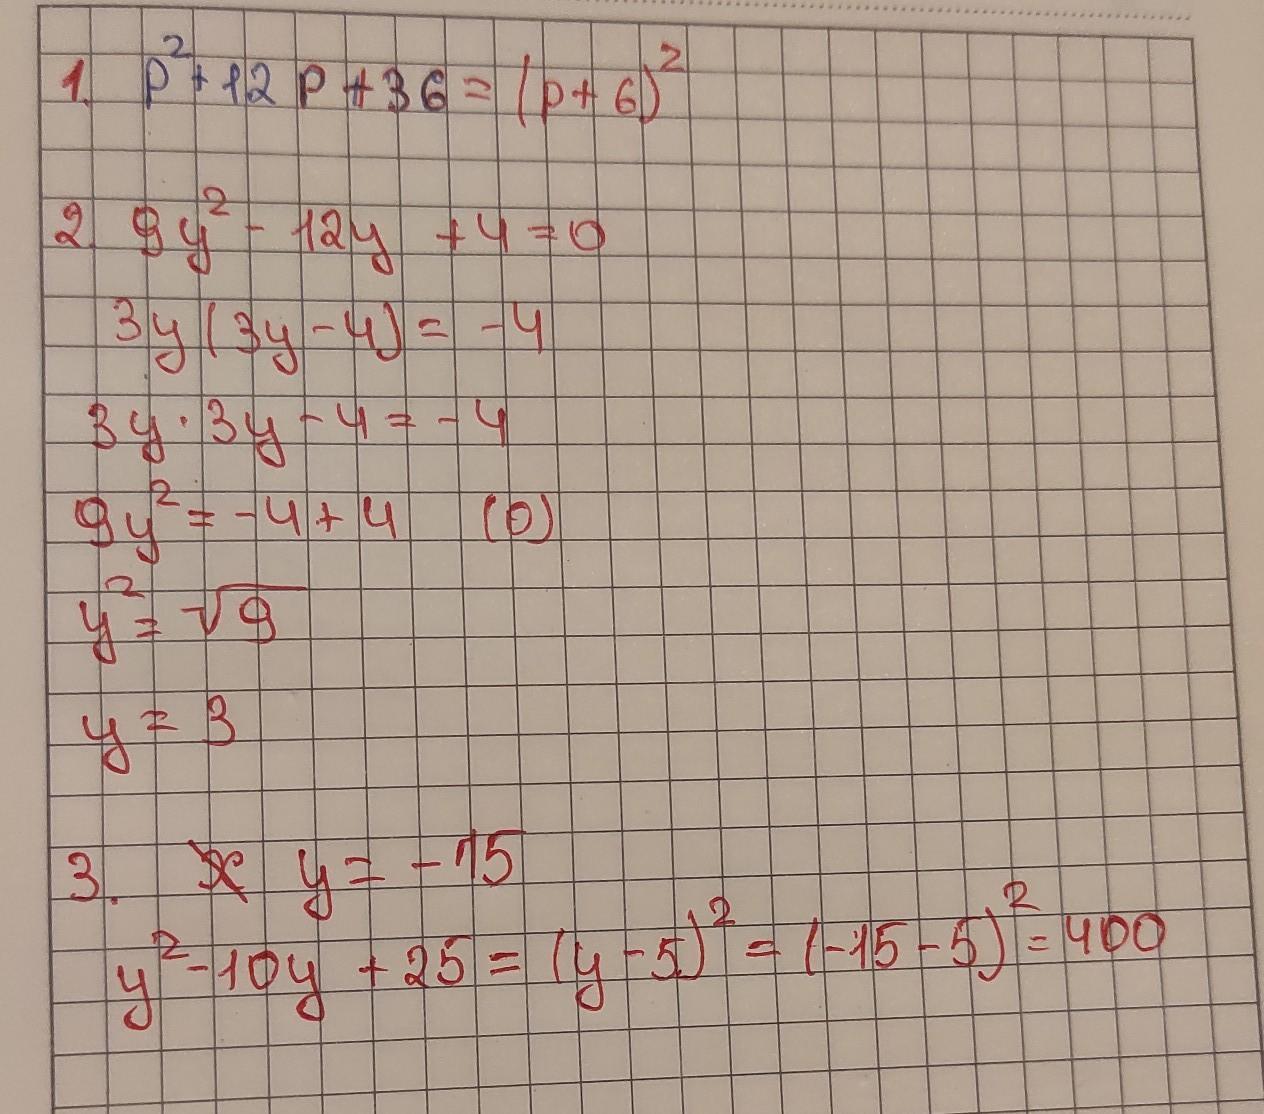 1. p² + 12p + 36 = (p + 6)²
2. 9y² - 12y + 4 = 0
3y(3y - 4) = -4
3y · 3y - 4 = -4
9y² = -4 + 4 (0)
y² = √9
y = 3
3. y = -15
y² - 10y + 25 = (y - 5)² = (-15 - 5)² = 400